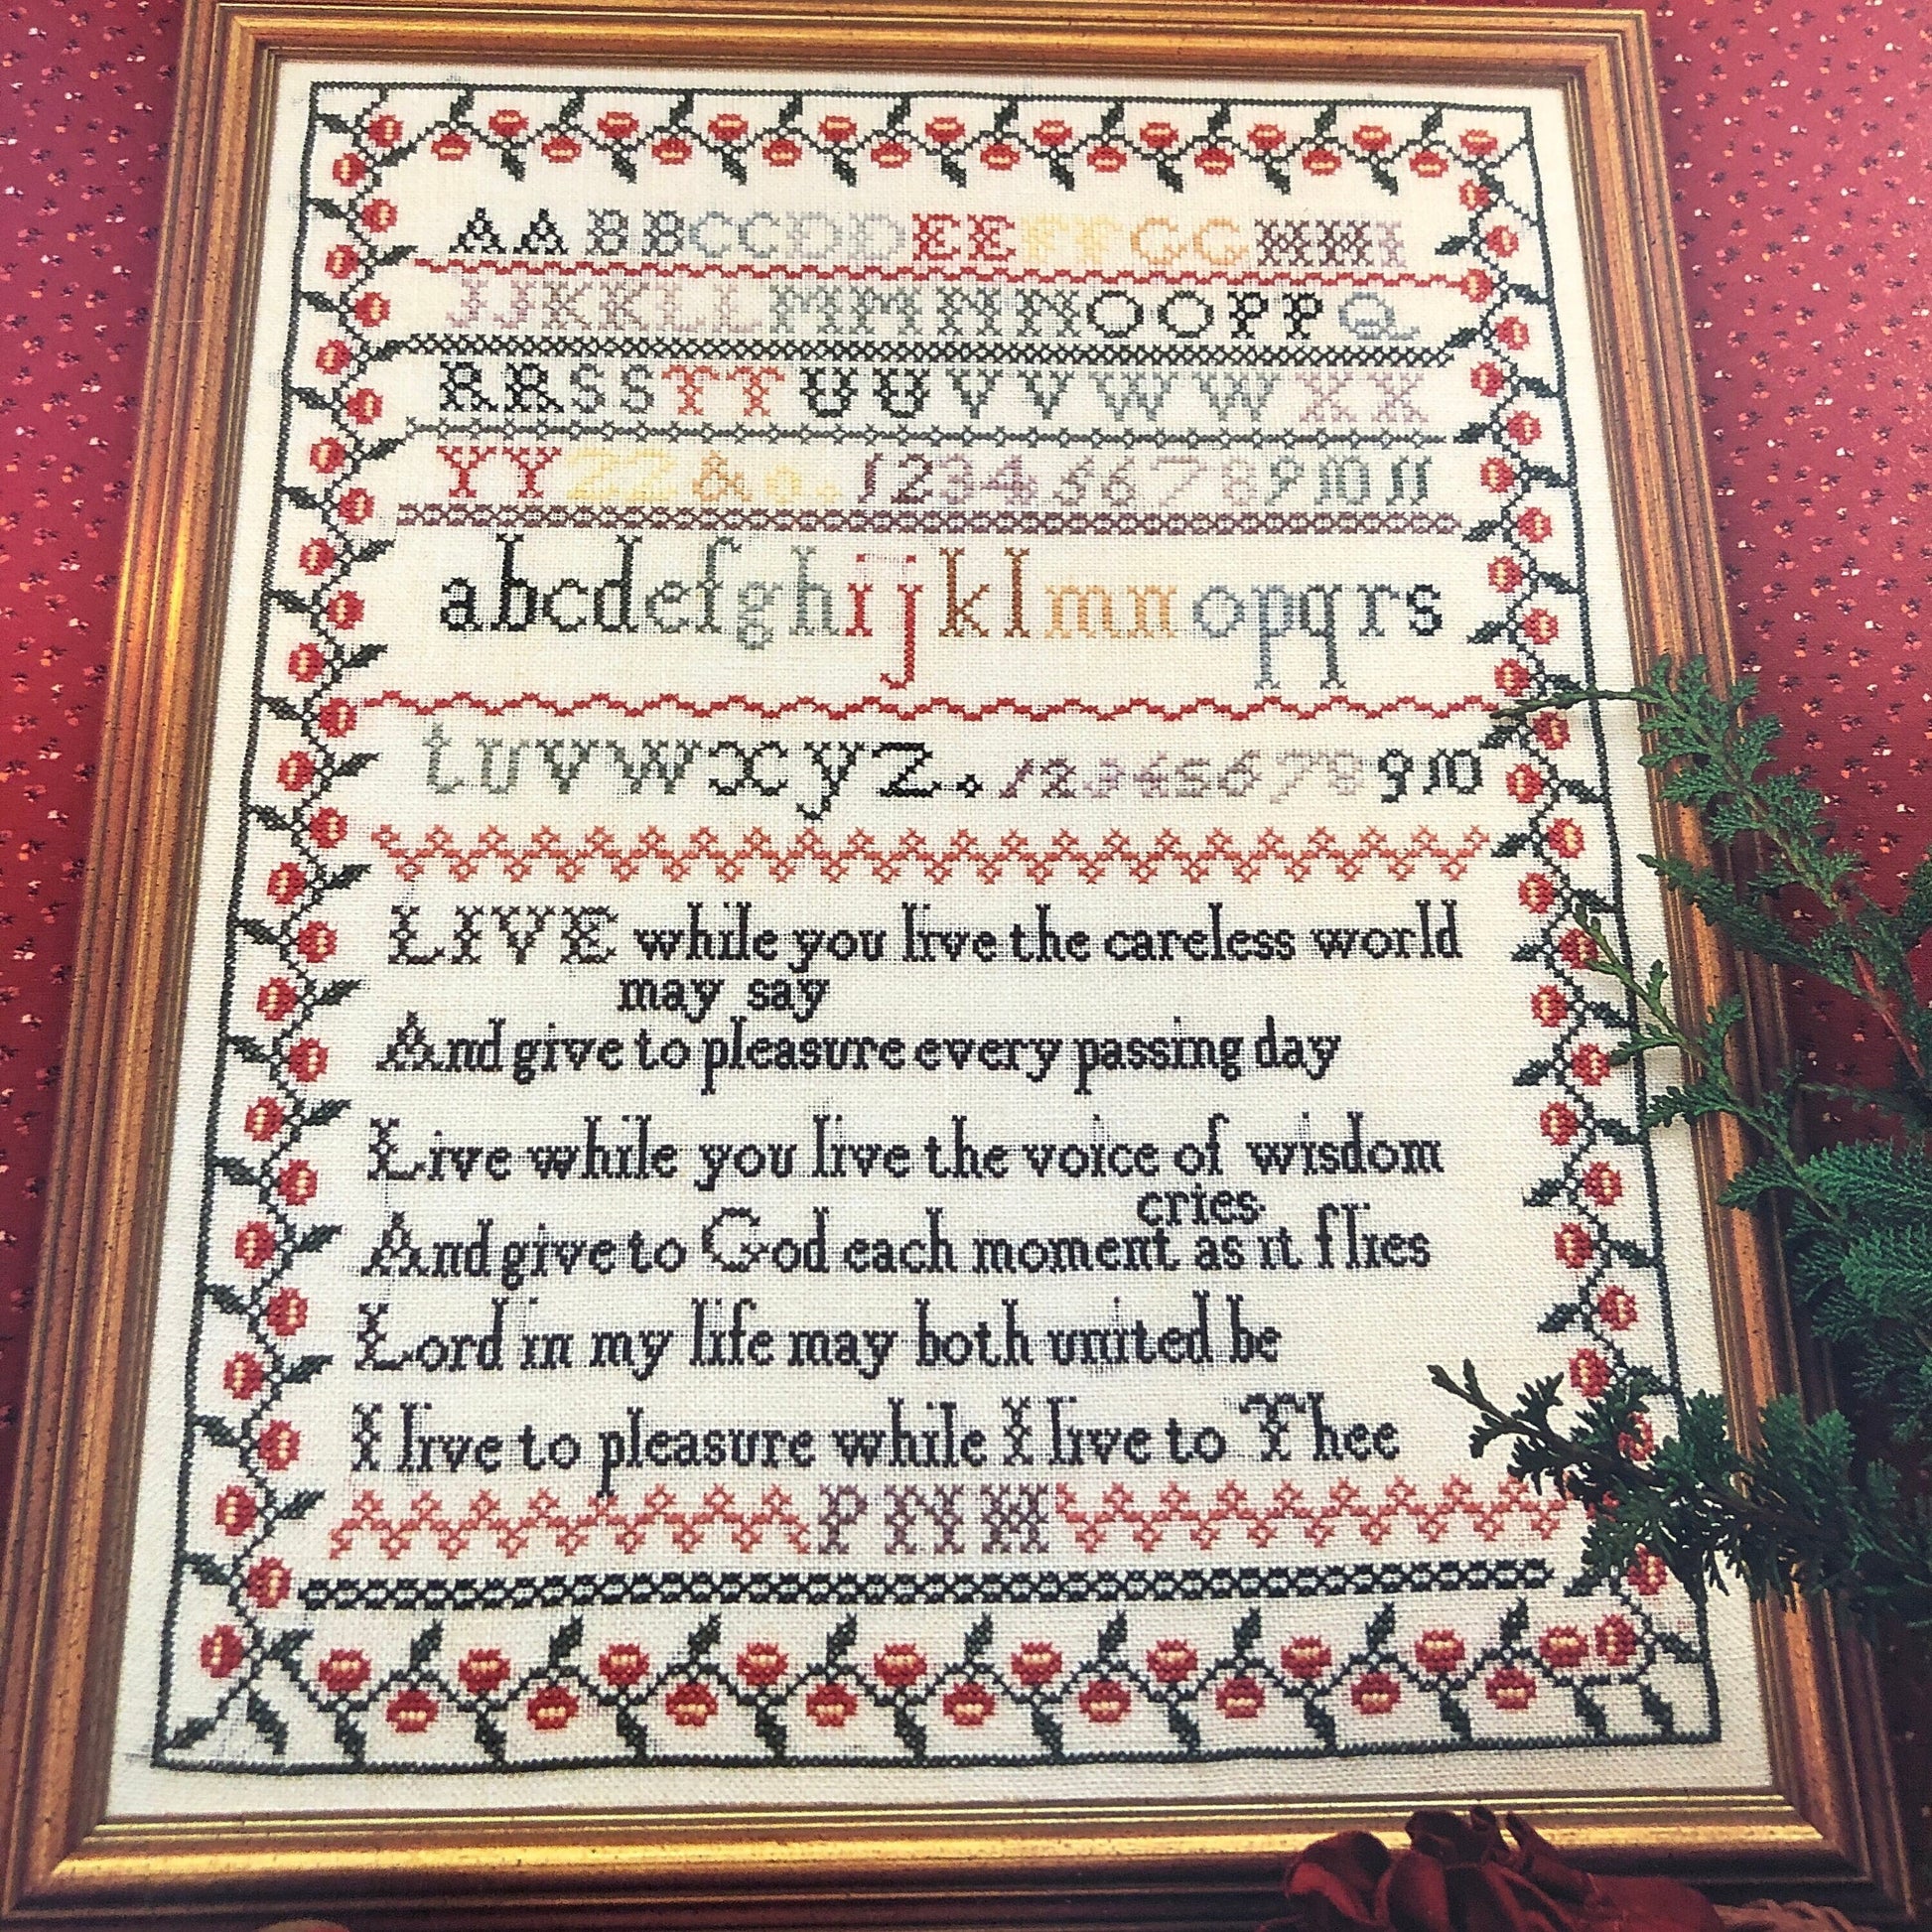 AA BB CC DD EE FF GG HH I
JJ KK LL MM NN OO PP Q
RR SS TT UU VV WW XX
YY ZZ & o . 1 2 3 4 5 6 7 8 9 10 11
abcdefghijklmnopqrs
tuvwxyz. 1 2 3 4 5 6 7 8 9 10
LIVE while you live the careless world
may say
And give to pleasure every passing day
Live while you live the voice of wisdom
cries
And give to God each moment as it flies
Lord in my life may both united be
I live to pleasure while I live to Thee
PNH